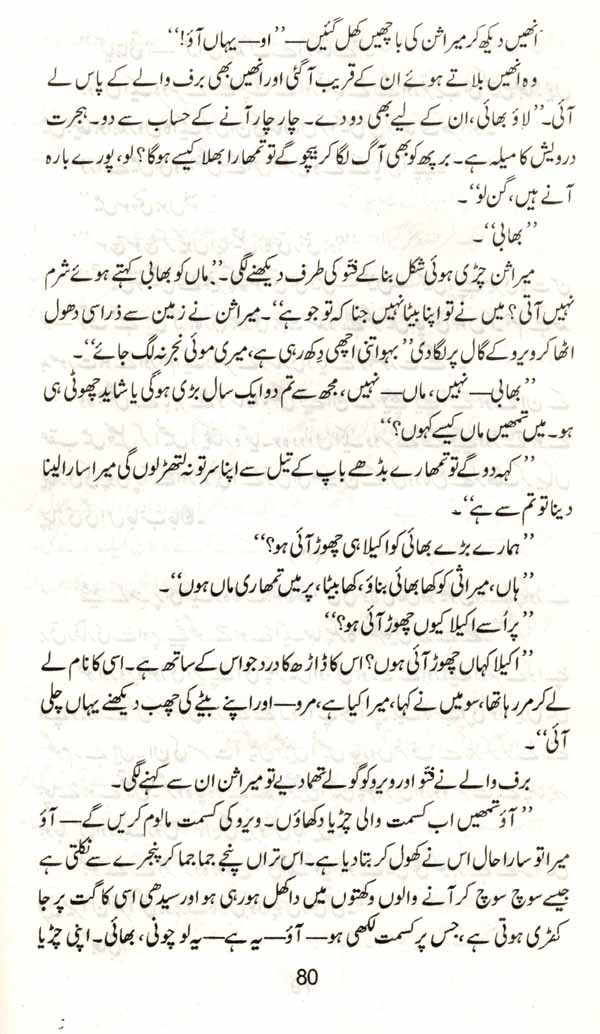 انھیں دیکھ کر میراثن کی باچھیں کھل گئیں—’’او— یہاں آؤ!‘‘
وہ انھیں بلاتے ہوئے ان کے قریب آ گئی اور انھیں بھی برف والے کے پاس لے
آئی۔ ’’لاؤ بھائی، ان کے لیے بھی دو دے۔ چار چار آنے کے حساب سے دو۔ ہجرت
درویش کا میلہ ہے۔ برپھ کو بھی آگ لگا کر بیچو گے تو تمھارا بھلا کیسے ہوگا؟ لو، پورے بارہ
آنے ہیں، گن لو‘‘۔
’’بھابی‘‘۔
میراثن چڑی ہوئی شکل بنا کے فتو کی طرف دیکھنے لگی۔ ’’ماں کو بھابی کہتے ہوئے شرم
نہیں آتی؟ میں نے تو اپنا بیٹا نہیں جنا کہ تو جو ہے‘‘۔ میراثن نے زمین سے ذرا سی دھول
اٹھا کر ویرو کے گال پر لگا دی ’’بہو اتنی اچھی دِکھ رہی ہے، میری موئی نجر نہ لگ جائے‘‘۔
’’بھابی— نہیں، ماں— نہیں، مجھ سے تم دو ایک سال بڑی ہوگی یا شاید چھوٹی ہی
ہو۔ میں تمھیں ماں کیسے کہوں؟‘‘
’’کہہ دو گے تو تمھارے بڈھے باپ کے تیل سے اپنا سر تو نہ لتھڑ لوں گی میرا سارا لینا
دینا تو تم سے ہے‘‘۔
’’ہمارے بڑے بھائی کو اکیلا ہی چھوڑ آئی ہو؟‘‘
’’ہاں، میراثی کو کھا بھائی بناؤ، کھا بیٹا، پر میں تمھاری ماں ہوں‘‘۔
’’پر اُسے اکیلا کیوں چھوڑ آئی ہو؟‘‘
’’اکیلا کہاں چھوڑ آئی ہوں؟ اس کا ڈاڑھ کا درد جو اس کے ساتھ ہے۔ اسی کا نام لے
لے کر مر رہا تھا، سو میں نے کہا، میرا کیا ہے، مرو— اور اپنے بیٹے کی چھب دیکھنے یہاں چلی
آئی‘‘۔
برف والے نے فتو اور ویرو کو گولے تھما دیے تو میراثن ان سے کہنے لگی۔
’’آؤ تمھیں اب کسمت والی چڑیا دکھاؤں۔ ویرو کی کسمت مالوم کریں گے— آؤ
میرا تو سارا حال اس نے کھول کر بتا دیا ہے۔ اس تراں پنجے جما جما کر پنجرے سے نکلتی ہے
جیسے سوچ سوچ کر آنے والوں وکھتوں میں داکھل ہو رہی ہو اور سیدھی اسی کاگت پر جا
کھڑی ہوتی ہے، جس پر کسمت لکھی ہو— آؤ— یہ ہے— یہ لو چونی، بھائی۔ اپنی چڑیا
80